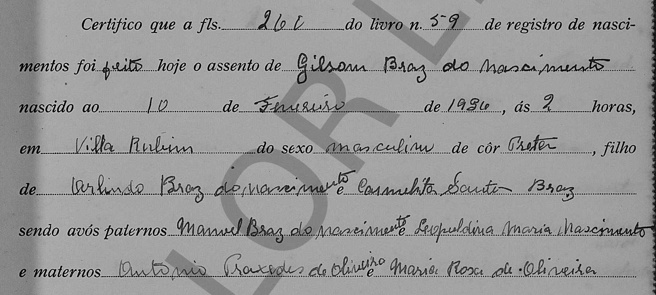 Certifico que a fls. 261 do livro n. 59 de registro de nasci-
mentos foi feito hoje o assento de Gilsom Braz do nascimento
nascido ao 10 de Fevereiro de 1936, ás 2 horas,
em Villa Rubim do sexo masculino de côr Preta, filho
de Arlindo Braz do nascimento e Carmelita Santos Braz
sendo avós paternos Manoel Braz do nascimento e Leopuldina Maria Nascimento
e maternos Antonio Praxedes de Oliveira e Maria Rosa de Oliveira